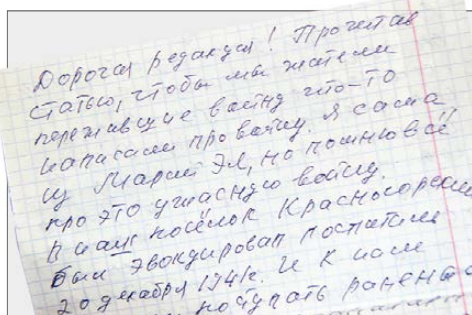 Дорогая редакция! Прочитав
статью, чтобы мы жители
пережившие войну что-то
написали про войну. Я сама
из Марий Эл, но помню всё
про это ужасную войну.
В наш посёлок Красногорский
был эвакуирован госпиталь
20 декабря 1941г. И к нам
поступать